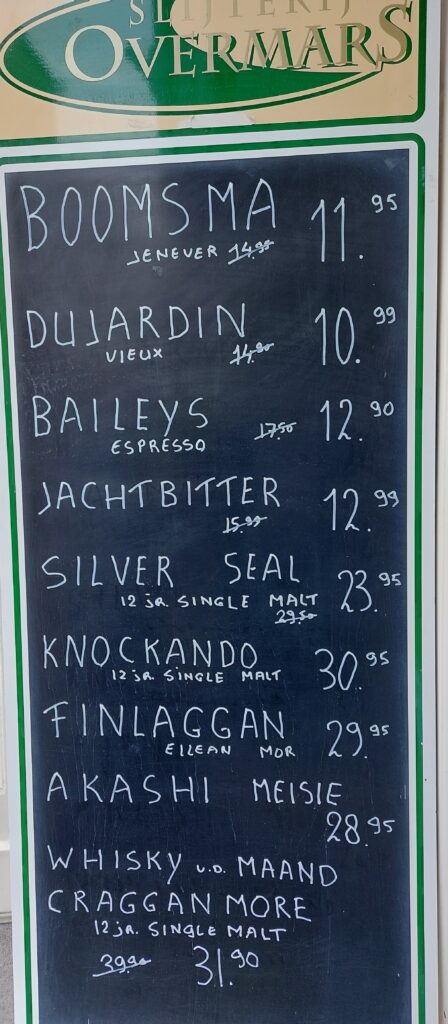 SLIJTERIJ
OVERMARS
BOOMSMA 11.95
JENEVER 14.95
DUJARDIN 10.99
VIEUX 14.90
BAILEYS 17.50 12.90
ESPRESSO
JACHTBITTER 12.99
15.99
SILVER SEAL 23.95
12 jr. SINGLE MALT
29.50
KNOCKANDO 30.95
12 jr. SINGLE MALT
FINLAGGAN 29.95
EILEAN MOR
AKASHI MEISIE
28.95
WHISKY v.d. MAAND
CRAGGANMORE
12 jr. SINGLE MALT
39.90 31.90